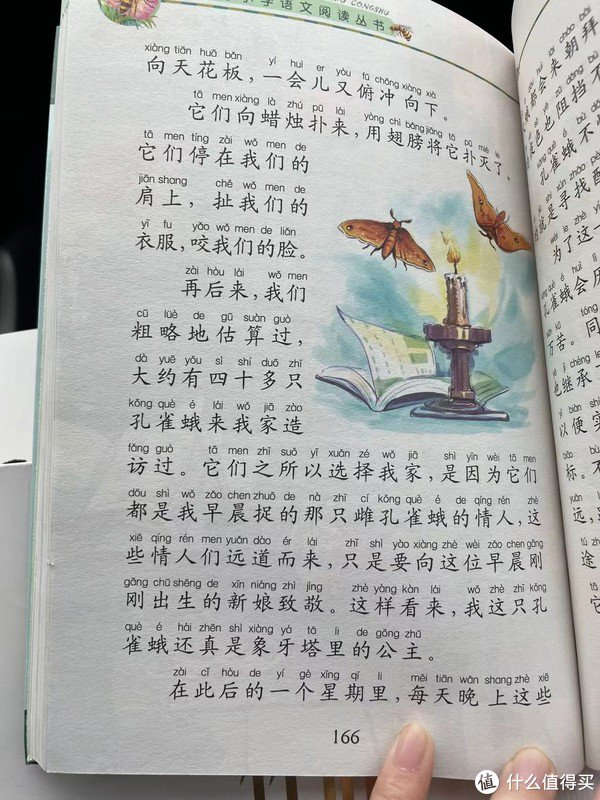 小学语文阅读丛书
CONGSHU
xiàng tiān huā bǎn yí huì er yòu fǔ chōng xiàng xià
向天花板，一会儿又俯冲向下。
tā men xiàng là zhú pū lái yòng chì bǎng jiāng tā pū miè le
它们向蜡烛扑来，用翅膀将它扑灭了。
tā men tíng zài wǒ men de
它们停在我们的
jiān shang chě wǒ men de
肩上，扯我们的
yī fu yǎo wǒ men de liǎn
衣服，咬我们的脸。
zài hòu lái wǒ men
再后来，我们
cū lüè de gū suàn guò
粗略地估算过，
dà yuē yǒu sì shí duō zhī
大约有四十多只
kǒng què é lái wǒ jiā zào
孔雀蛾来我家造
fǎng guò tā men zhī suǒ yǐ xuǎn zé wǒ jiā shì yīn wèi tā men
访过。它们之所以选择我家，是因为它们
dōu shì wǒ zǎo chen zhuō de nà zhī cí kǒng què é de qíng rén zhè
都是我早晨捉的那只雌孔雀蛾的情人，这
xiē qíng rén men yuǎn dào ér lái zhǐ shì yào xiàng zhè wèi zǎo chen gāng
些情人们远道而来，只是要向这位早晨刚
gāng chū shēng de xīn niáng zhì jìng zhè yàng kàn lái wǒ zhè zhī kǒng
刚出生的新娘致敬。这样看来，我这只孔
què é hái zhēn shì xiàng yá tǎ li de gōng zhǔ
雀蛾还真是象牙塔里的公主。
zài cǐ hòu de yí gè xīng qī li měi tiān wǎn shang zhè xiē
在此后的一个星期里，每天晚上这些
166
都会来朝拜
色也阻挡不
孔雀蛾不
就是寻找配
为了这一
孔雀蛾会历
万苦。同
也继承一
以便实
标。不
远，
途
值 什么值得买